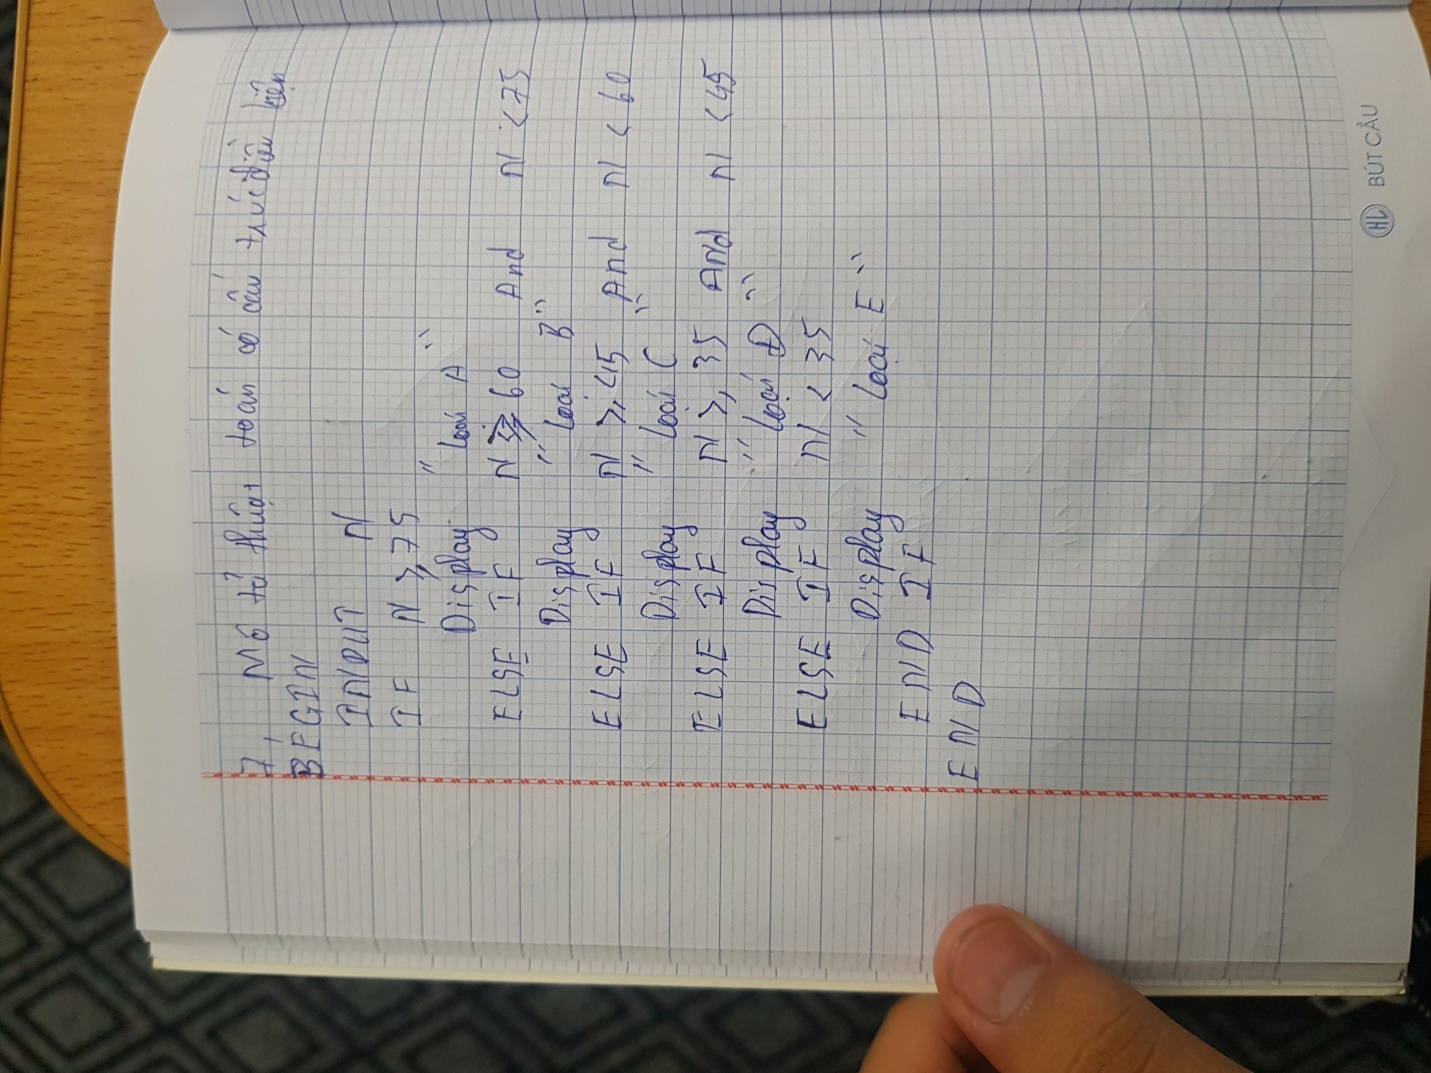 7, Mô tả thuật toán có cấu trúc điều kiện
BEGIN
INPUT N
IF N ≥ 75
Display " Loại A "
ELSE IF N ≥ 60 And N < 75
Display " Loại B "
ELSE IF N ≥ 45 And N < 60
Display " Loại C "
ELSE IF N ≥ 35 And N < 45
Display " Loại D "
ELSE IF N < 35
Display " Loại E "
END IF
END
HL BÚT CẦU